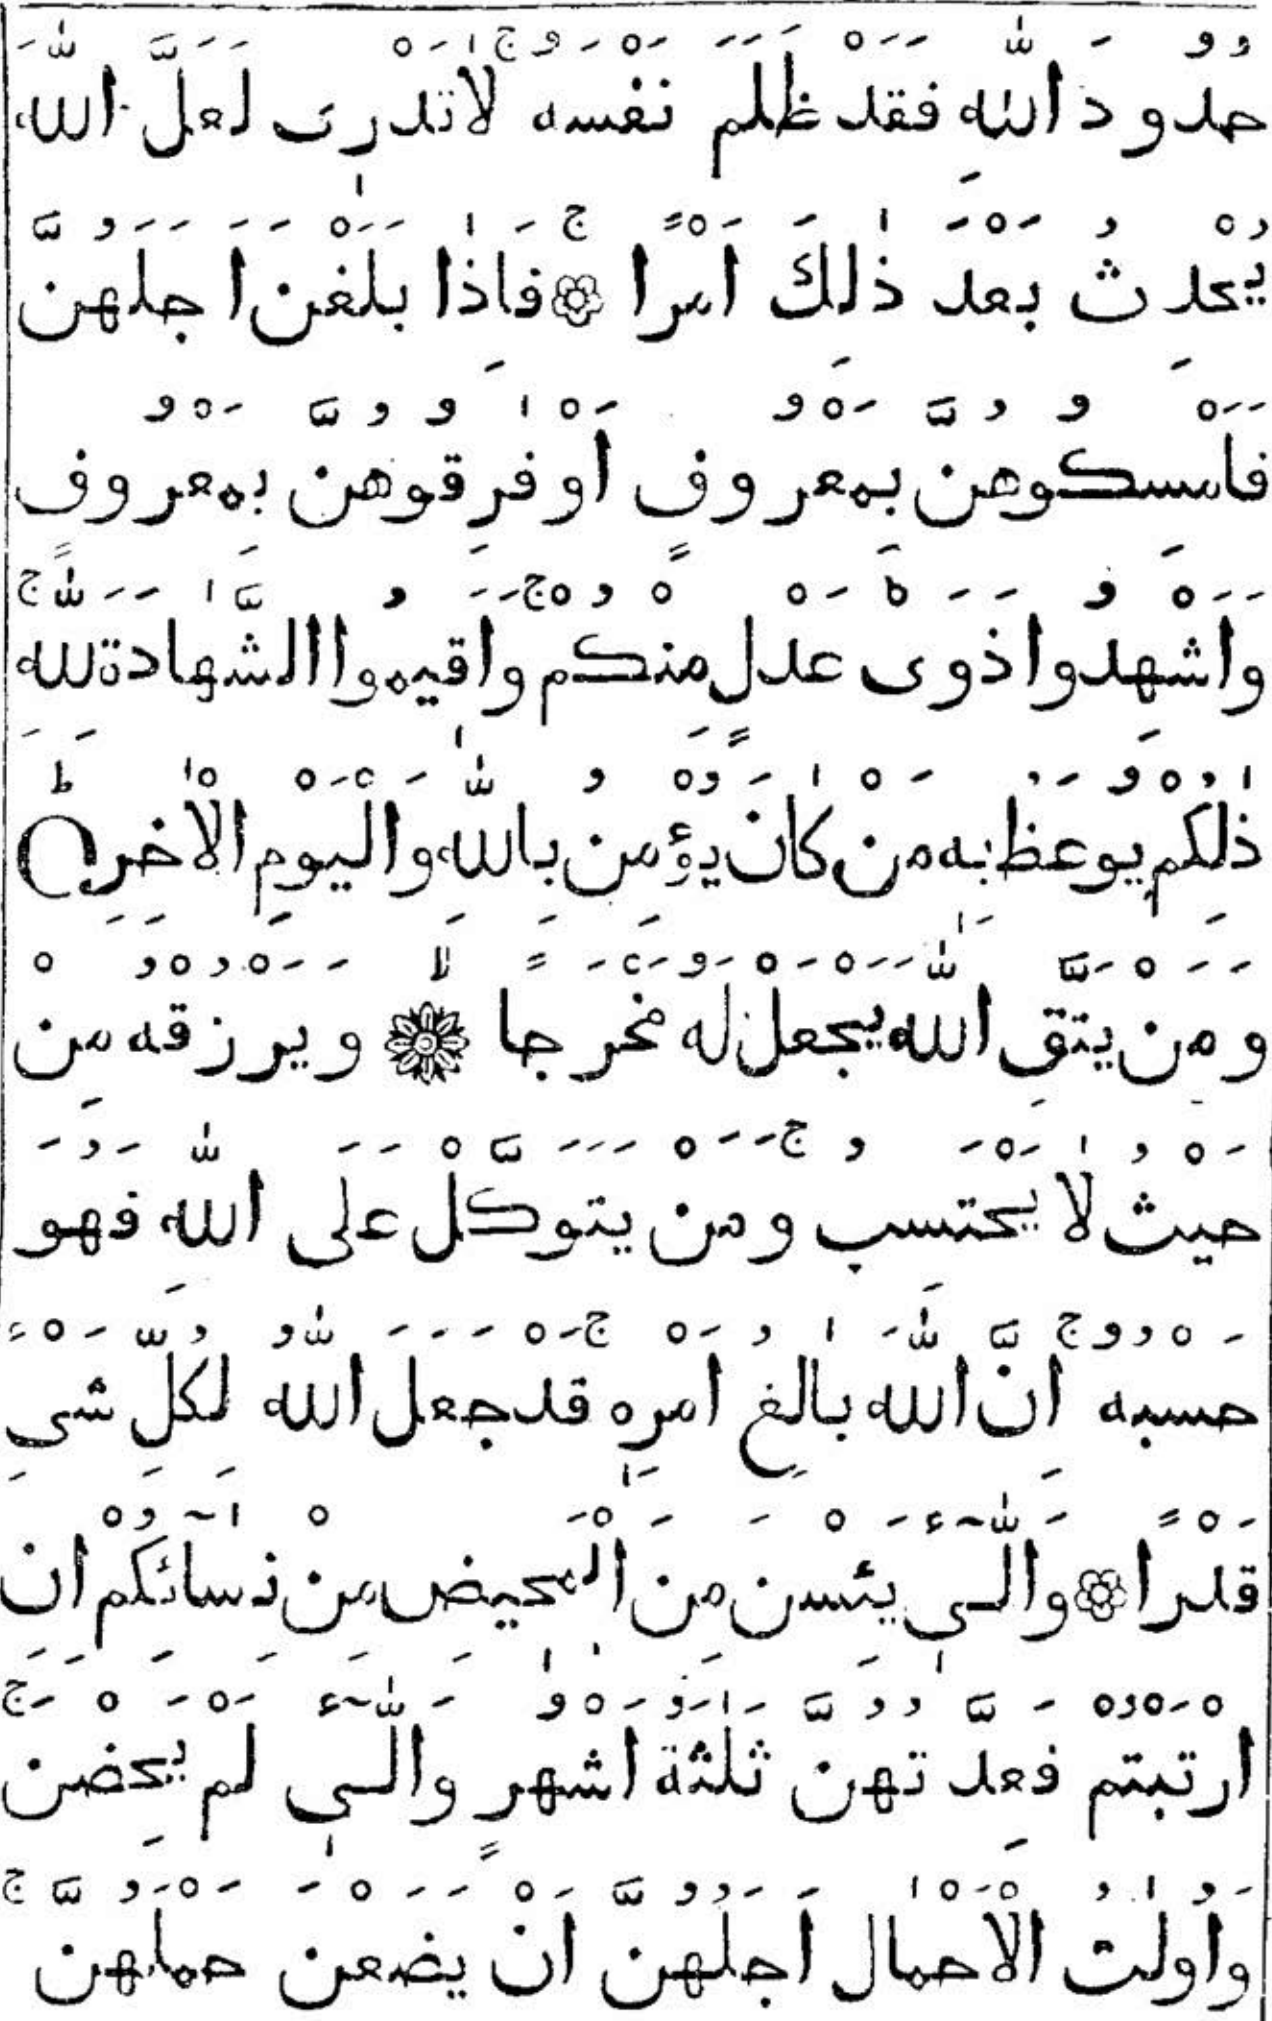 حُدُودَ اللّٰهِ فَقَدْ ظَلَمَ نَفْسَهُ ۚ لَا تَدْرِىْ لَعَلَّ اللّٰهَ
يُحْدِثُ بَعْدَ ذٰلِكَ اَمْرًا ۚ فَاِذَا بَلَغْنَ اَجَلَهُنَّ
فَاَمْسِكُوْهُنَّ بِمَعْرُوْفٍ اَوْ فَارِقُوْهُنَّ بِمَعْرُوْفٍ
وَّاَشْهِدُوْا ذَوَىْ عَدْلٍ مِّنْكُمْ ۚ وَاَقِيْمُوا الشَّهَادَةَ لِلّٰهِ ۚ
ذٰلِكُمْ يُوْعَظُ بِهٖ مَنْ كَانَ يُؤْمِنُ بِاللّٰهِ وَالْيَوْمِ الْاٰخِرِ ؕ
وَمَنْ يَّتَّقِ اللّٰهَ يَجْعَلْ لَهٗ مَخْرَجًا ۙ وَيَرْزُقْهُ مِنْ
حَيْثُ لَا يَحْتَسِبُ ۚ وَمَنْ يَتَوَكَّلْ عَلَى اللّٰهِ فَهُوَ
حَسْبُهُ ۚ اِنَّ اللّٰهَ بَالِغُ اَمْرِهٖ ۚ قَدْ جَعَلَ اللّٰهُ لِكُلِّ شَىْءٍ
قَدْرًا وَالّٰٓـىِٔ يَئِسْنَ مِنَ الْمَحِيْضِ مِنْ نِسَآئِكُمْ اِنِ
ارْتَبْتُمْ فَعِدَّتُهُنَّ ثَلٰثَةُ اَشْهُرٍ وَالّٰٓـىِٔ لَمْ يَحِضْنَ ۚ
وَاُولَاتُ الْاَحْمَالِ اَجَلُهُنَّ اَنْ يَضَعْنَ حَمْلَهُنَّ ۚ